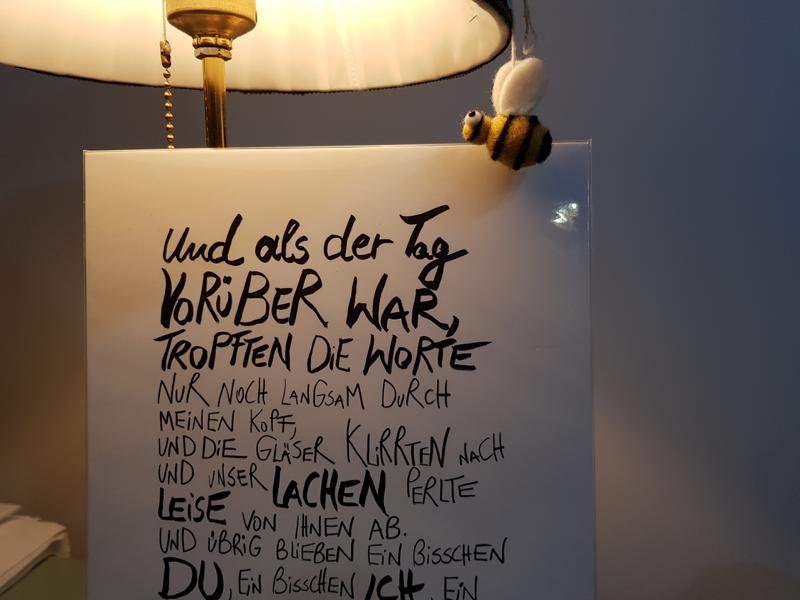 Und als der Tag
VORÜBER WAR,
TROPFTEN DIE WORTE
NUR NOCH LANGSAM DURCH
MEINEN KOPF,
UND DIE GLÄSER KLIRRTEN NACH
UND UNSER LACHEN PERLTE
LEISE VON IHNEN AB.
UND ÜBRIG BLIEBEN EIN BISSCHEN
DU, EIN BISSCHEN ICH, EIN